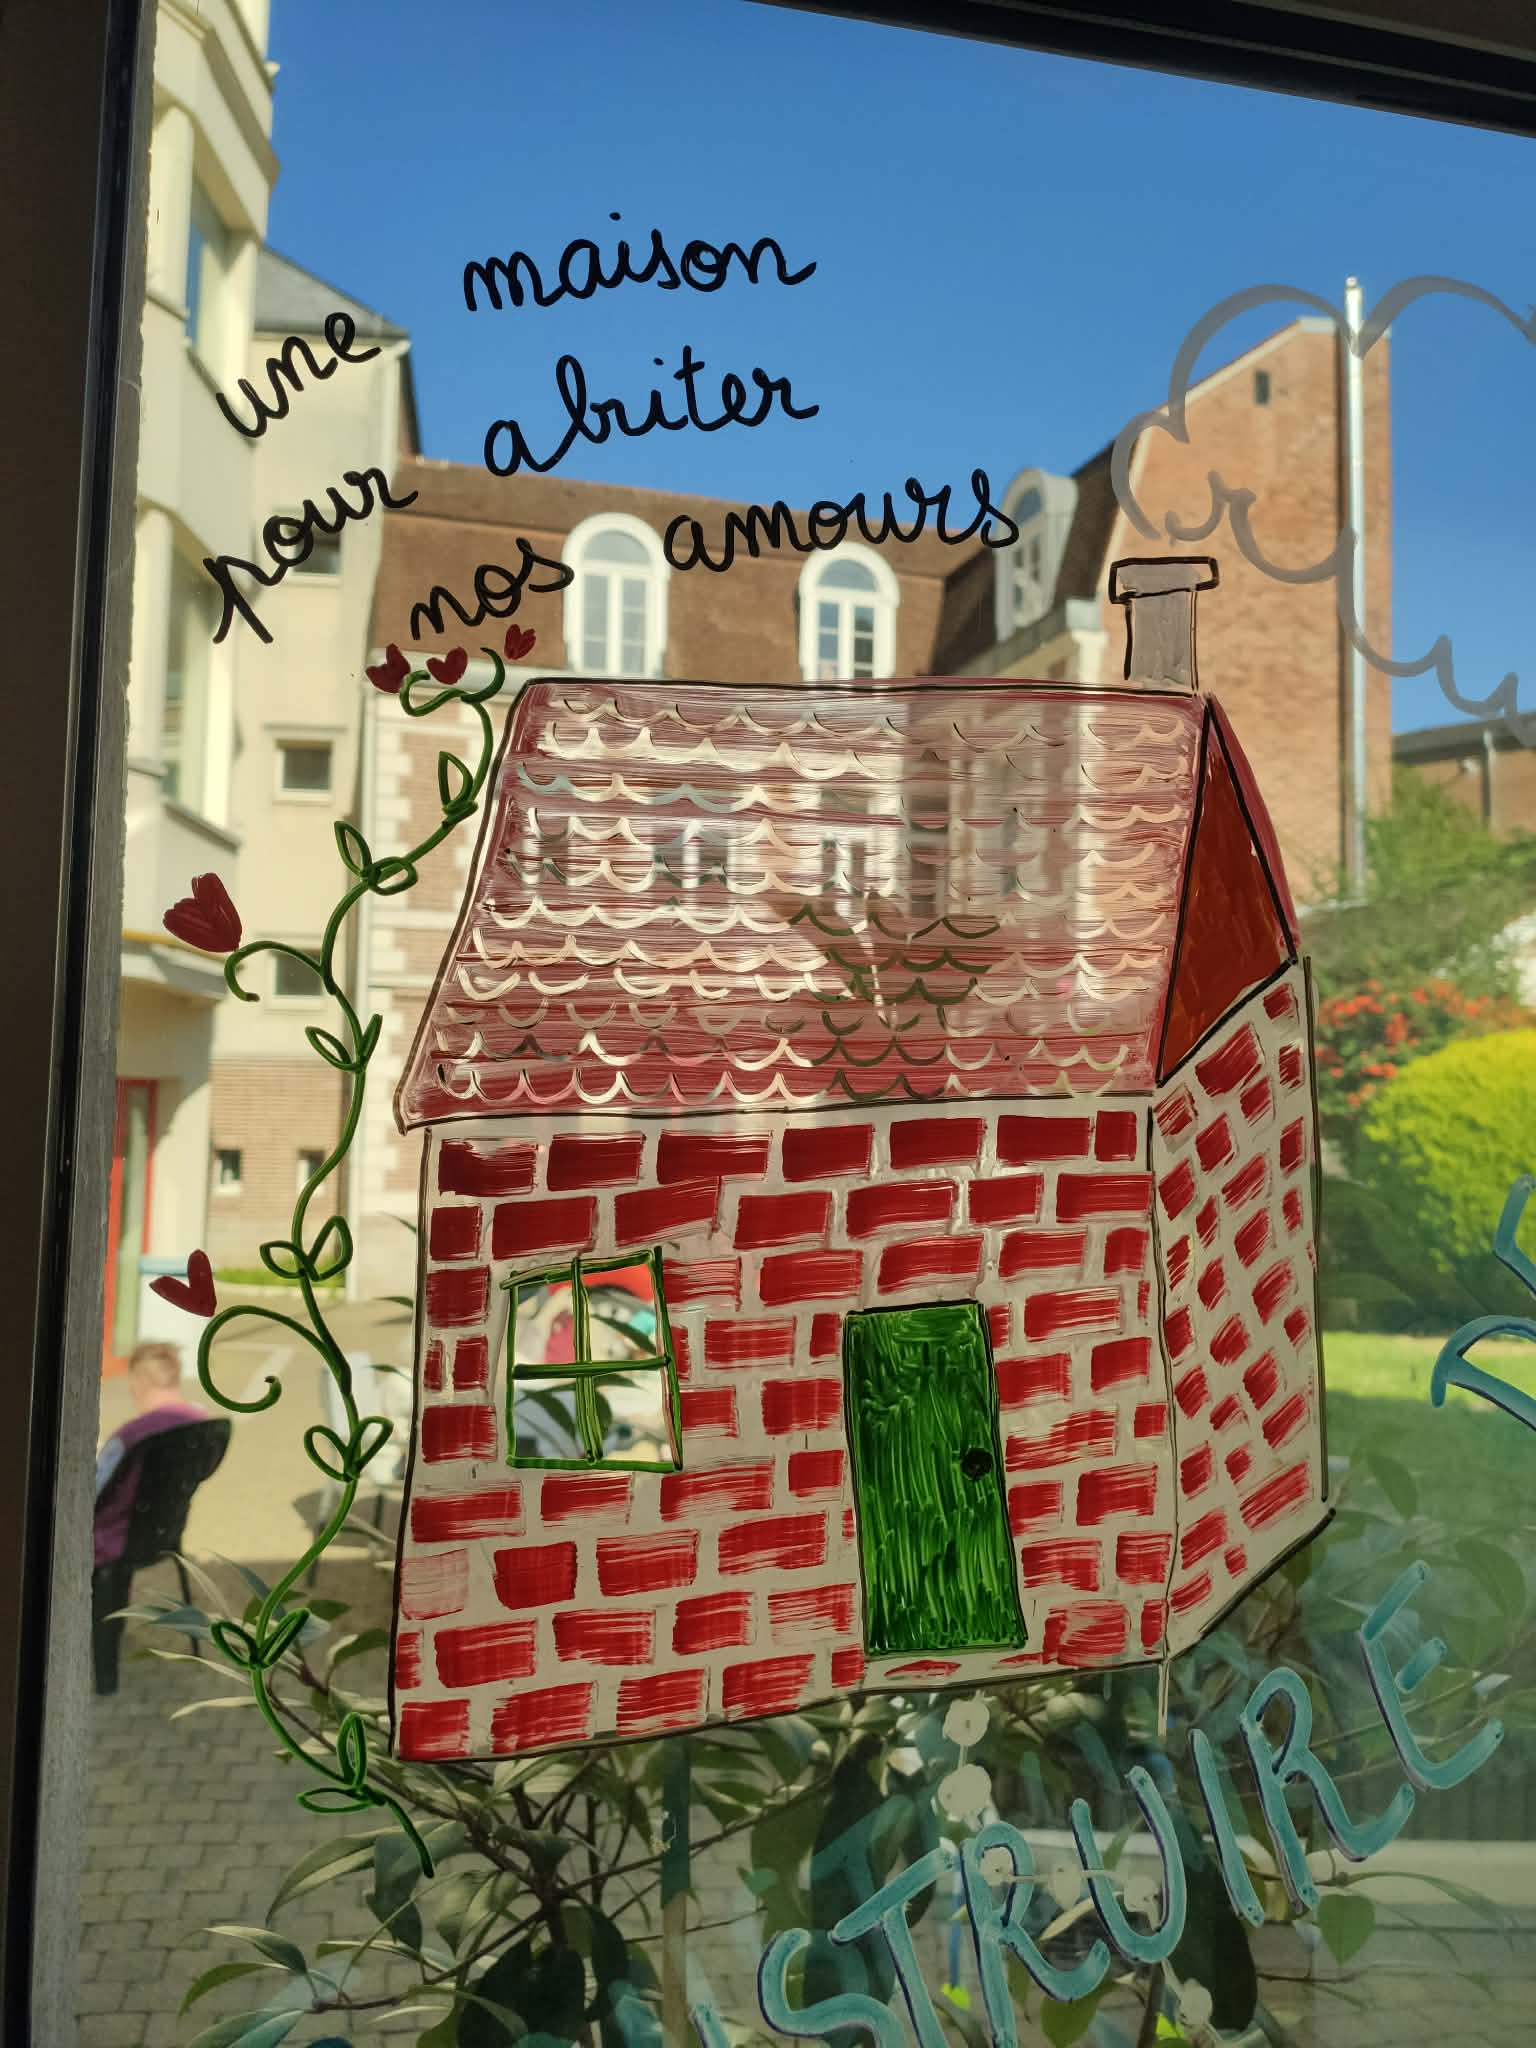 une maison
pour abriter
nos amours
STRUIRE